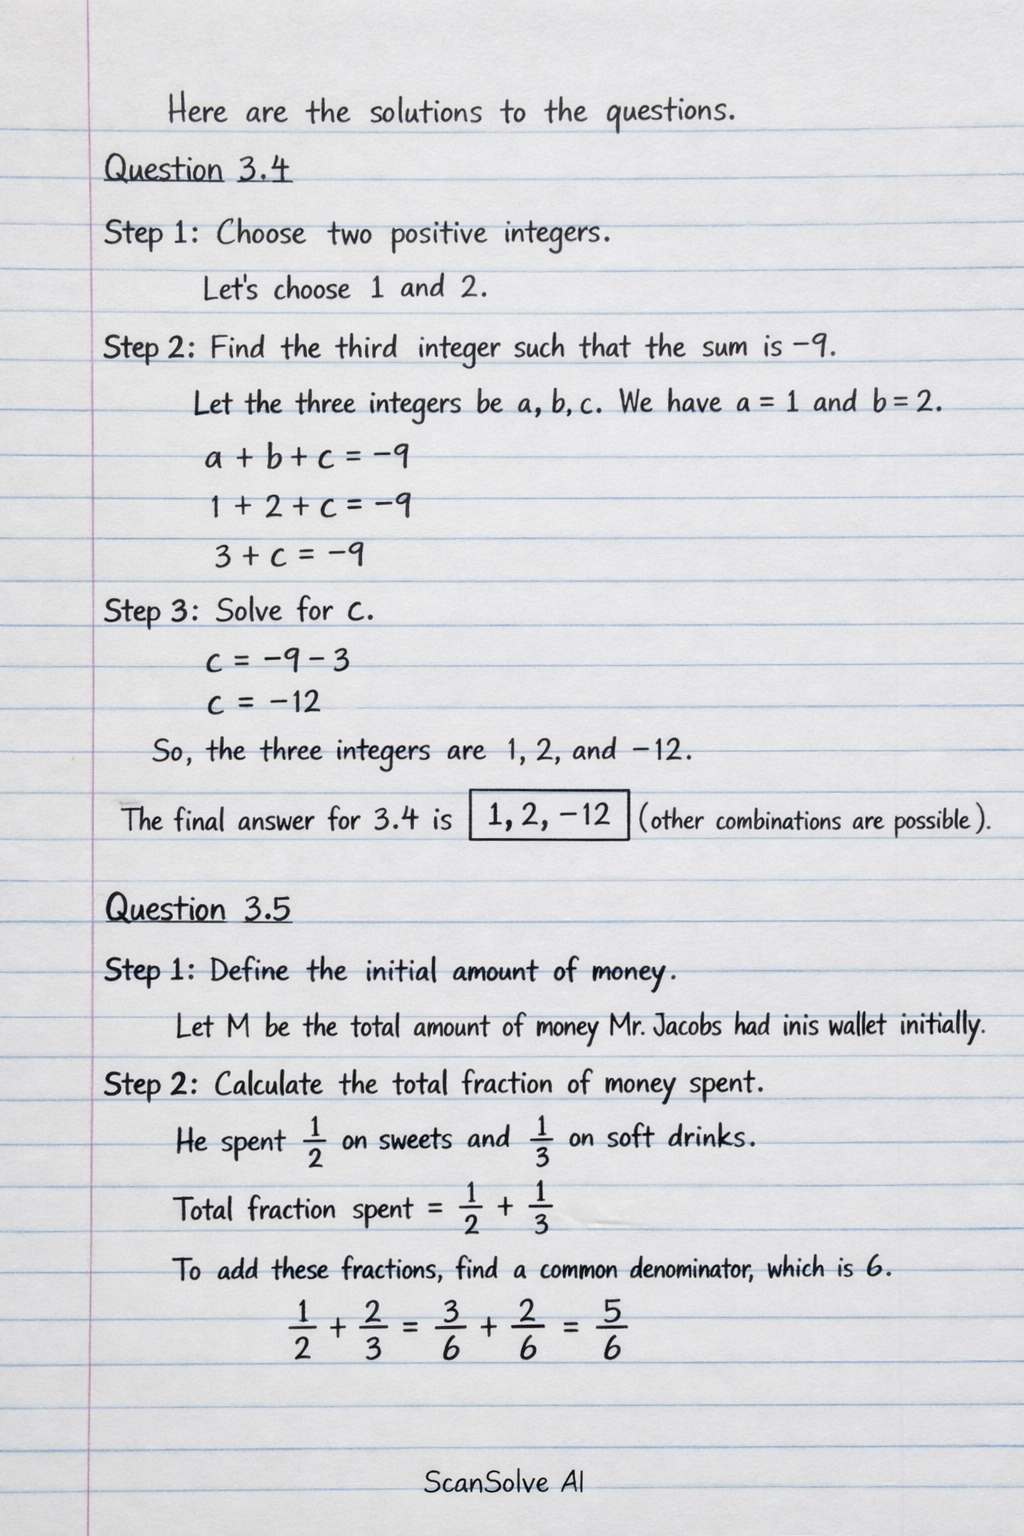 Here are the solutions to the questions.
Question 3.4
Step 1: Choose two positive integers.
Let's choose 1 and 2.
Step 2: Find the third integer such that the sum is −9.
Let the three integers be a, b, c. We have a = 1 and b = 2.
a + b + c = −9
1 + 2 + c = −9
3 + c = −9
Step 3: Solve for c.
c = −9 − 3
c = −12
So, the three integers are 1, 2, and −12.
The final answer for 3.4 is 1, 2, −12 (other combinations are possible).
Question 3.5
Step 1: Define the initial amount of money.
Let M be the total amount of money Mr. Jacobs had inis wallet initially.
Step 2: Calculate the total fraction of money spent.
He spent 1/2 on sweets and 1/3 on soft drinks.
Total fraction spent = 1/2 + 1/3
To add these fractions, find a common denominator, which is 6.
1/2 + 2/3 = 3/6 + 2/6 = 5/6
ScanSolve AI